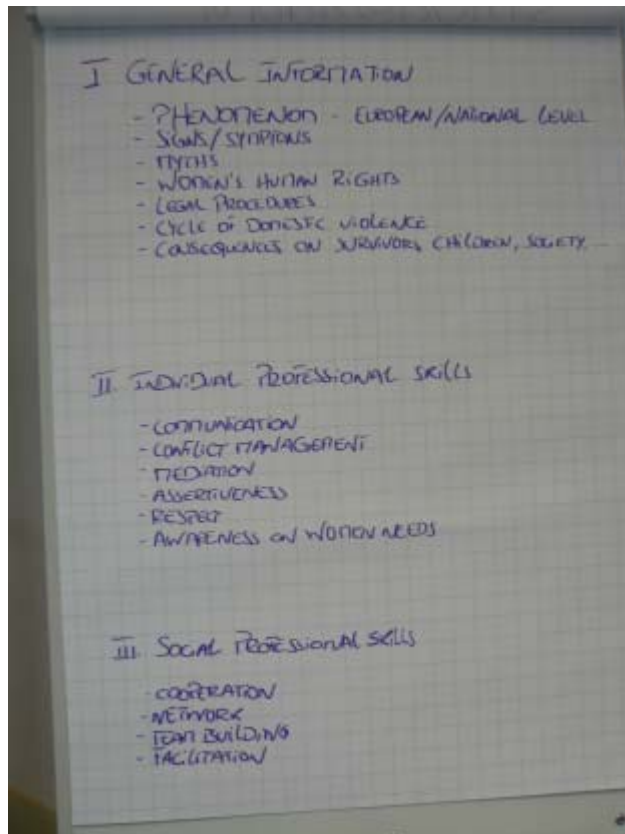 I GENERAL INFORMATION
- PHENOMENON - EUROPEAN/NATIONAL LEVEL
- SIGNS/SYMPTOMS
- MYTHS
- WOMEN'S HUMAN RIGHTS
- LEGAL PROCEDURES
- CYCLE OF DOMESTIC VIOLENCE
- CONSEQUENCES ON SURVIVORS, CHILDREN, SOCIETY...
II. INDIVIDUAL PROFESSIONAL SKILLS
- COMMUNICATION
- CONFLICT MANAGEMENT
- MEDIATION
- ASSERTIVENESS
- RESPECT
- AWARENESS ON WOMEN NEEDS
III. SOCIAL PROFESSIONAL SKILLS
- COOPERATION
- NETWORK
- TEAM BUILDING
- FACILITATION